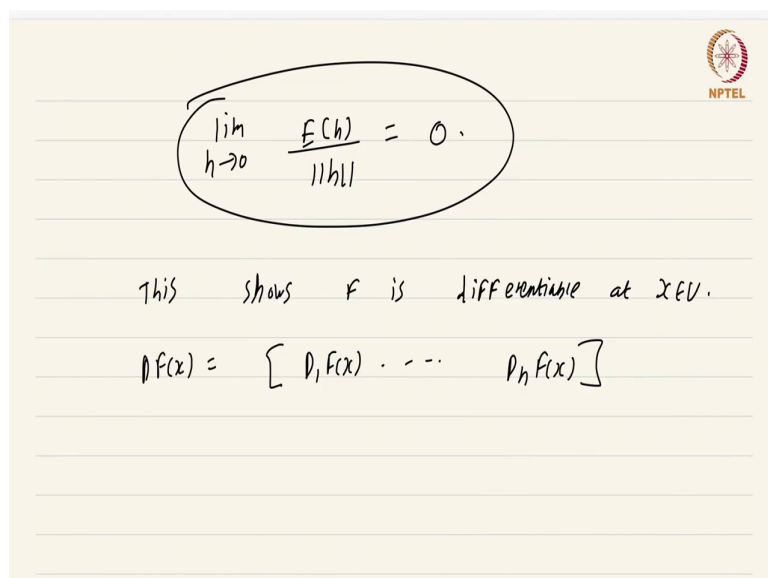 NPTEL
lim h→0 E(h)/||h|| = 0.
This shows F is differentiable at x∈U.
DF(x) = [ D₁F(x) . - - . DₙF(x) ]